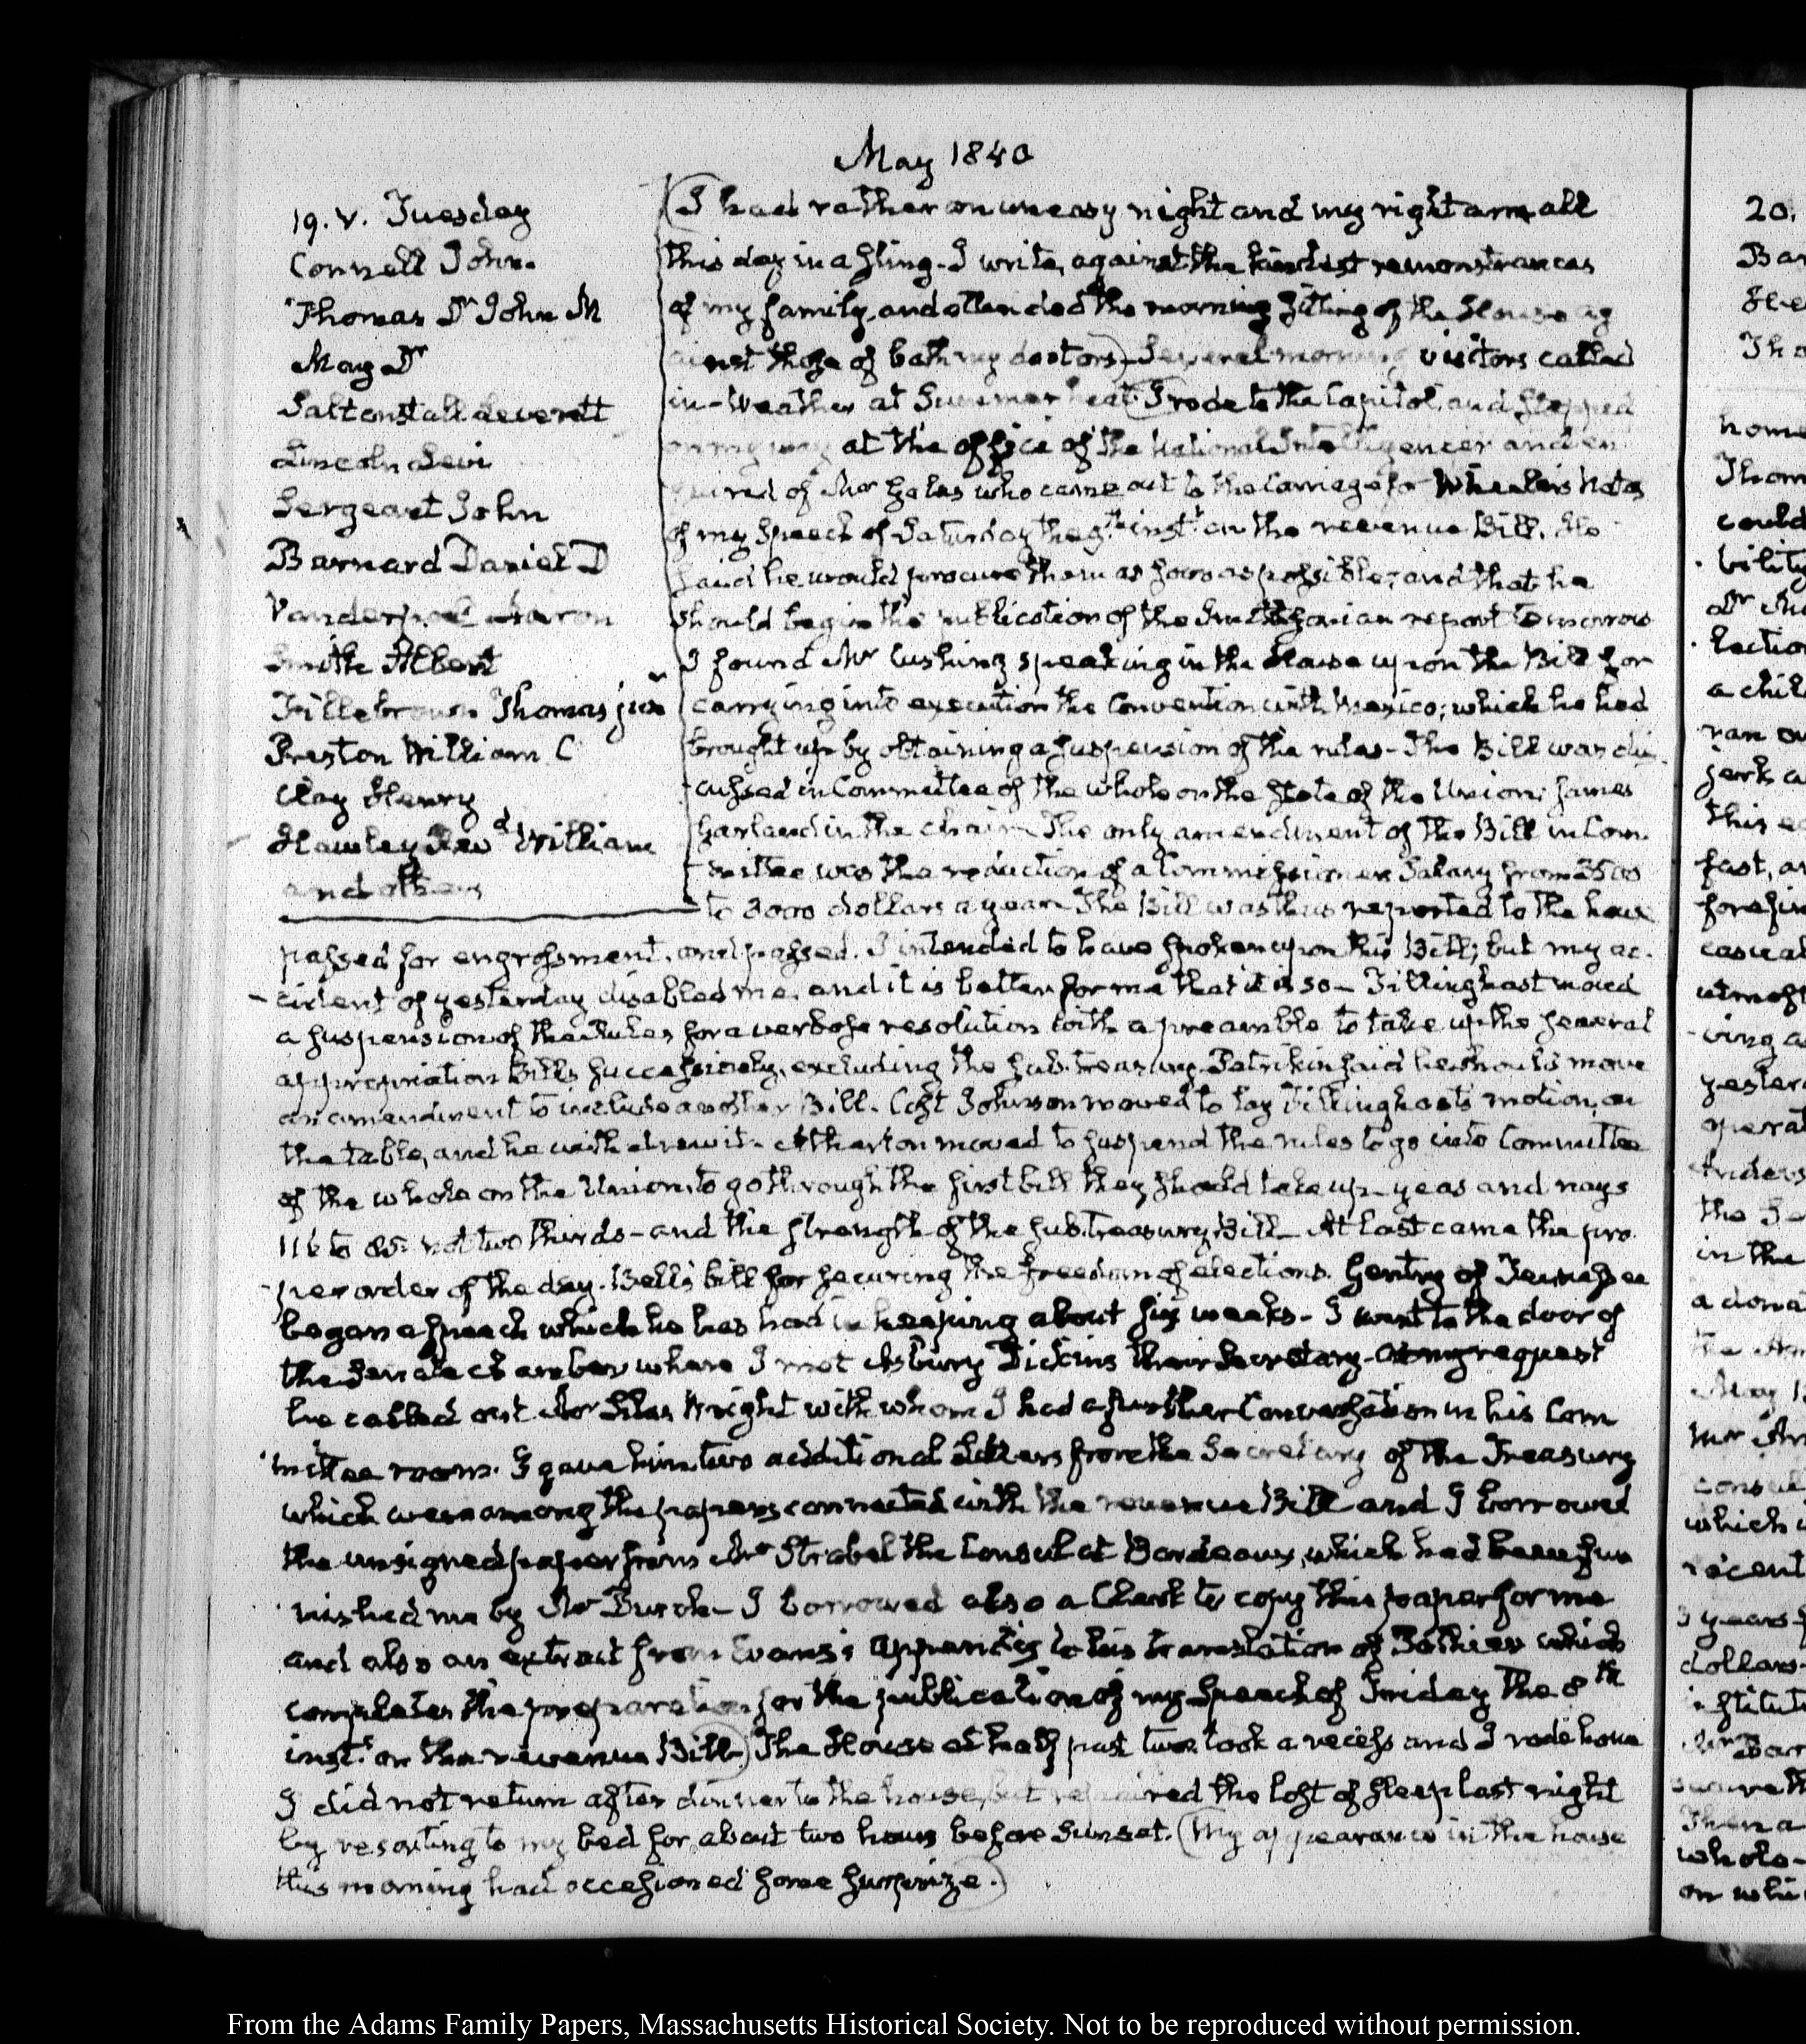 May 1840
19. V. Tuesday
Connell John.
Thomas Dr John M
May Dr
Saltonstall Leverett
Lincoln Levi
Sergeant John
Barnard Daniel D
Vanderpoel Aaron
Smith Albert
Fillebrown Thomas junr
Preston William C
Clay Henry
Hawley Revd William
and others
I had rather an uneasy night and my right arm all
this day in a sling. I write, against the kindest remonstrances
of my family, and attended the morning sitting of the House ag
ainst those of both my doctors) Several morning visitors called
in - Weather at Summer heat (I rode to the Capitol, and stopped
on my way at the office of the National Intelligencer and en
quired of Mr Gales who came out to the Carriage for Wheeler's Notes
of my Speech of Saturday the 9th. instt. on the revenue Bill. He
said he would procure them as soon as possible; and that he
should begin the publication of the Smithsonian report tomorrow
I found Mr Cushing speaking in the House upon the Bill for
carrying into execution the Convention with Mexico; which he had
brought up by obtaining a suspension of the rules - The Bill was dis
cussed in Committee of the whole on the state of the Union; James
Garland in the chair - The only amendment of the Bill in Com
mittee was the reduction of a Commissioner Salary from 3500
to 3000 dollars a year - The Bill was thus reported to the house
passed for engrossment, and passed. I intended to have spoken upon this Bill; but my ac-
cident of yesterday disabled me, and it is better for me that it is so - Tillinghast moved
a suspension of the Rules for a verbose resolution with a preamble to take up the general
appropriation Bills successively, excluding the sub. treasury. Petrikin said he should move
an amendment to include another Bill. Cost Johnson moved to lay Tillinghast's motion, on
the table, and he withdrew it - Atherton moved to suspend the rules to go into Committee
of the whole on the Union, to go through the first bill they should take up - yeas and nays
116 to 85. not two thirds - and the strength of the sub. treasury Bill - At last came the pro.
per order of the day. Bell's bill for securing the freedom of elections. Gentry of Tennessee
began a speech which he has had in keeping about six weeks - I went to the door of
the Senate chamber where I met Asbury Dickins their Secretary. At my request
he called out Mr Silas Wright with whom I had a further Conversation in his Com
mittee room. I gave him two additional Letters from the Secretary of the Treasury
which were among the papers connected with the revenue Bill and I borrowed
the unsigned paper from Mr Strobel the Consul at Bordeaux, which had been fur
nished me by Mr Burch - I borrowed also a Clerk to copy this paper for me
and also an extract from Evans's Appendix to his translation of Pothier which
completes the preparation for the publication of my Speech of Friday the 8th
instt. on the revenue Bill.) The House at half past two took a recess and I rode home
I did not return after dinner to the house, but repaired the loss of sleep last night
by resorting to my bed for about two hours before Sunset. (My appearance in the house
this morning had occasioned some surprize.)
From the Adams Family Papers, Massachusetts Historical Society. Not to be reproduced without permission.